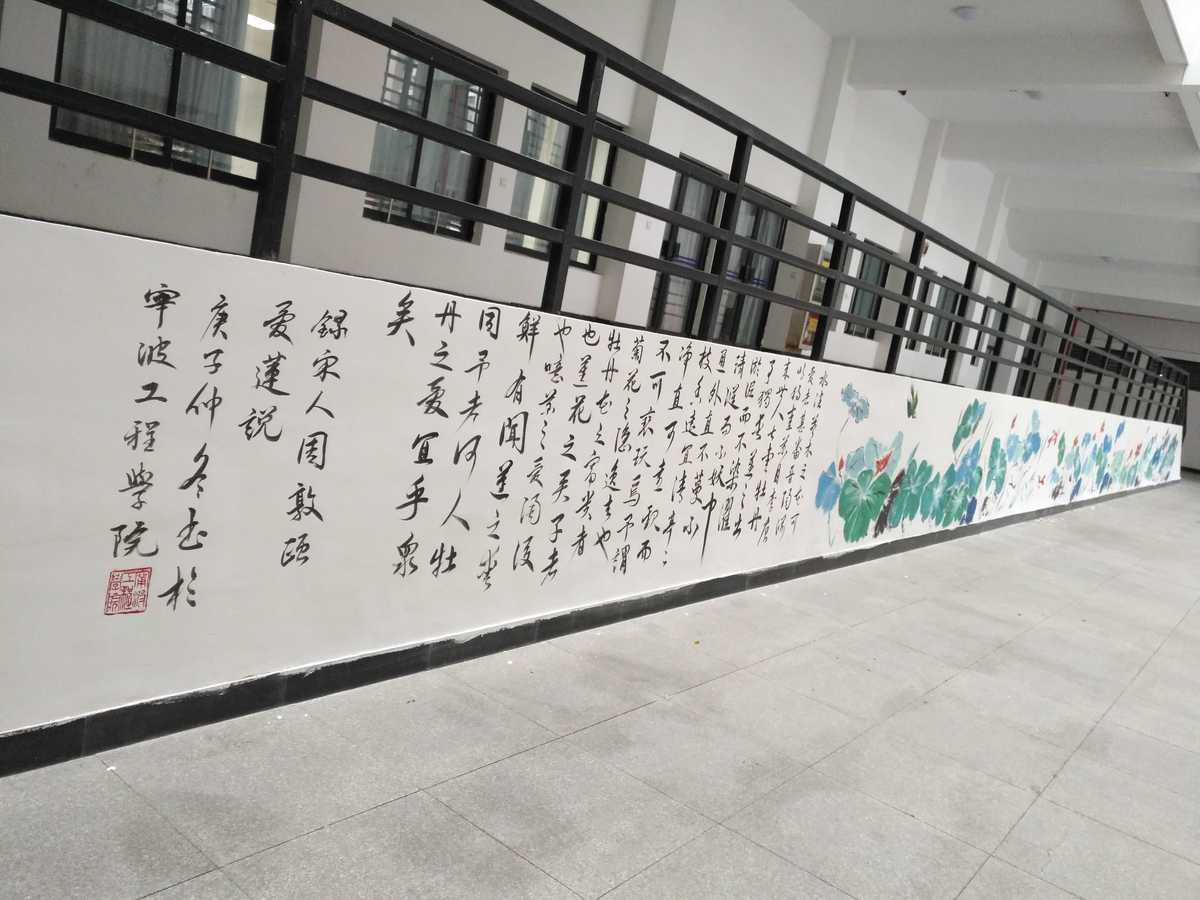 水陸草木之花可
愛者甚蕃晉陶淵
明獨愛菊自李唐
来世人甚愛牡丹
予獨愛蓮之出
淤泥而不染濯
清漣而不妖中
通外直不蔓不
枝香遠益清亭亭
净直可遠觀而
不可褻玩焉予謂
菊花之隐逸者也
牡丹花之富貴者
也蓮花之君子者
也噫菊之愛陶後
鮮有聞蓮之愛
同予者何人牡
丹之愛宜乎眾
矣
録宋人周敦頤
愛蓮説
庚子仲冬书於
寧波工程學院
寧波工程學院